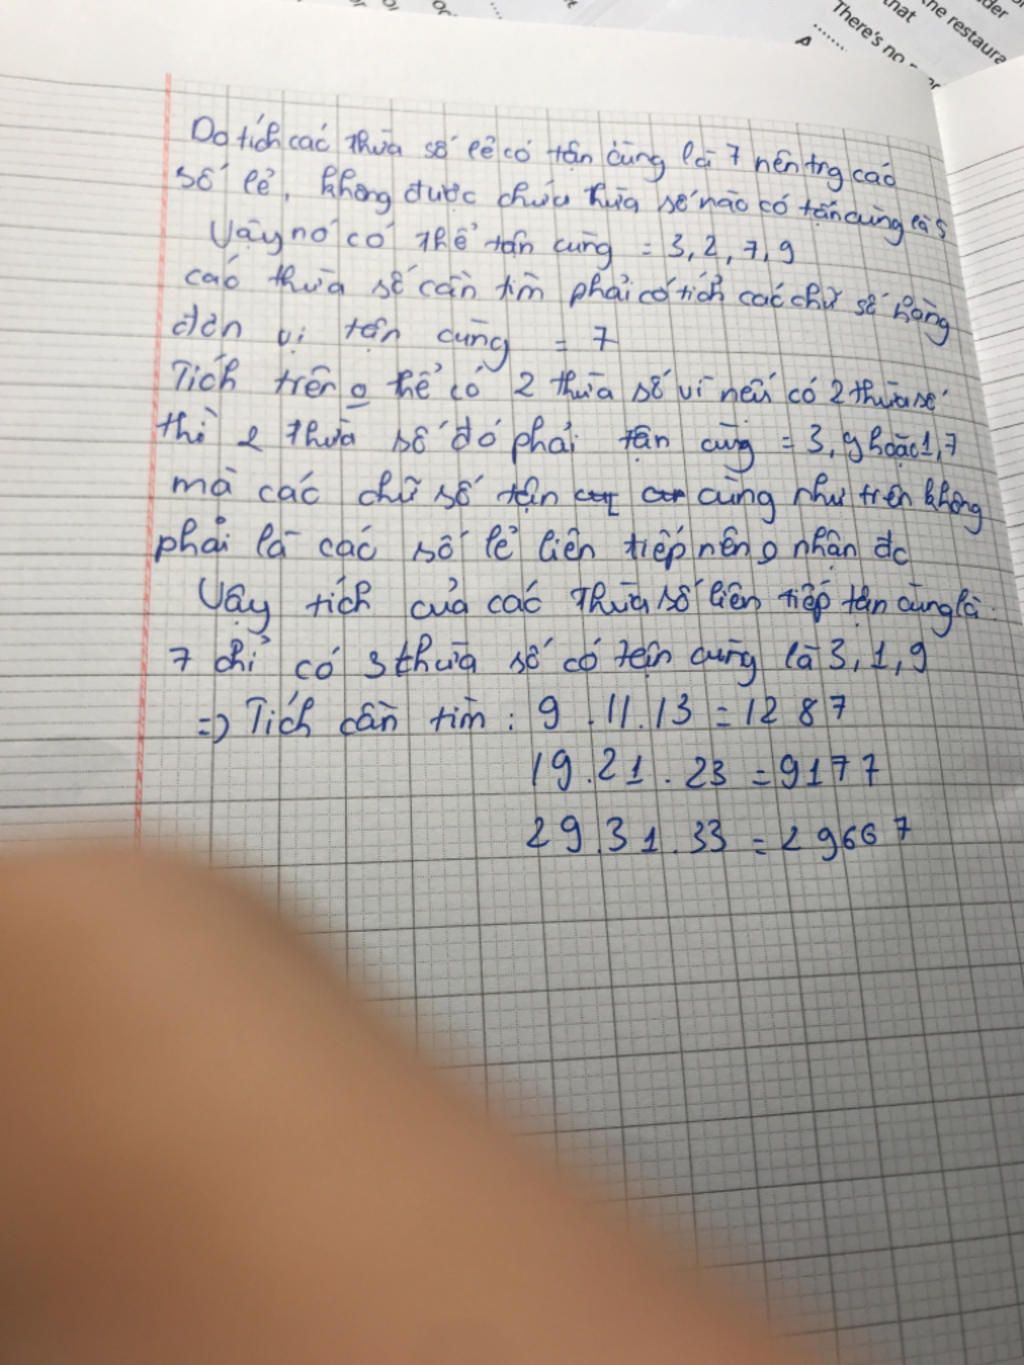 der
that
the restaura
There's no
........
A
Do tích các thừa số lẻ có tận cùng là 7 nên trg các
số lẻ, không được chứa thừa số nào có tận cùng là 5
Vậy nó có thể tận cùng = 3, 2, 7, 9
các thừa số cần tìm phải có tích các chữ số hàng
đơn vị tận cùng = 7
Tích trên o thể có 2 thừa số vì nếu có 2 thừa số
thì 2 thừa số đó phải tận cùng = 3, 9 hoặc 1, 7
mà các chữ số tận cùng như trên không
phải là các số lẻ liên tiếp nên o nhận đc
Vậy tích của các thừa số liên tiếp tận cùng là
7 chỉ có 3 thừa số có tận cùng là 3, 1, 9
=> Tích cần tìm : 9 . 11 . 13 = 1287
19 . 21 . 23 = 9177
29 . 31 . 33 = 29667